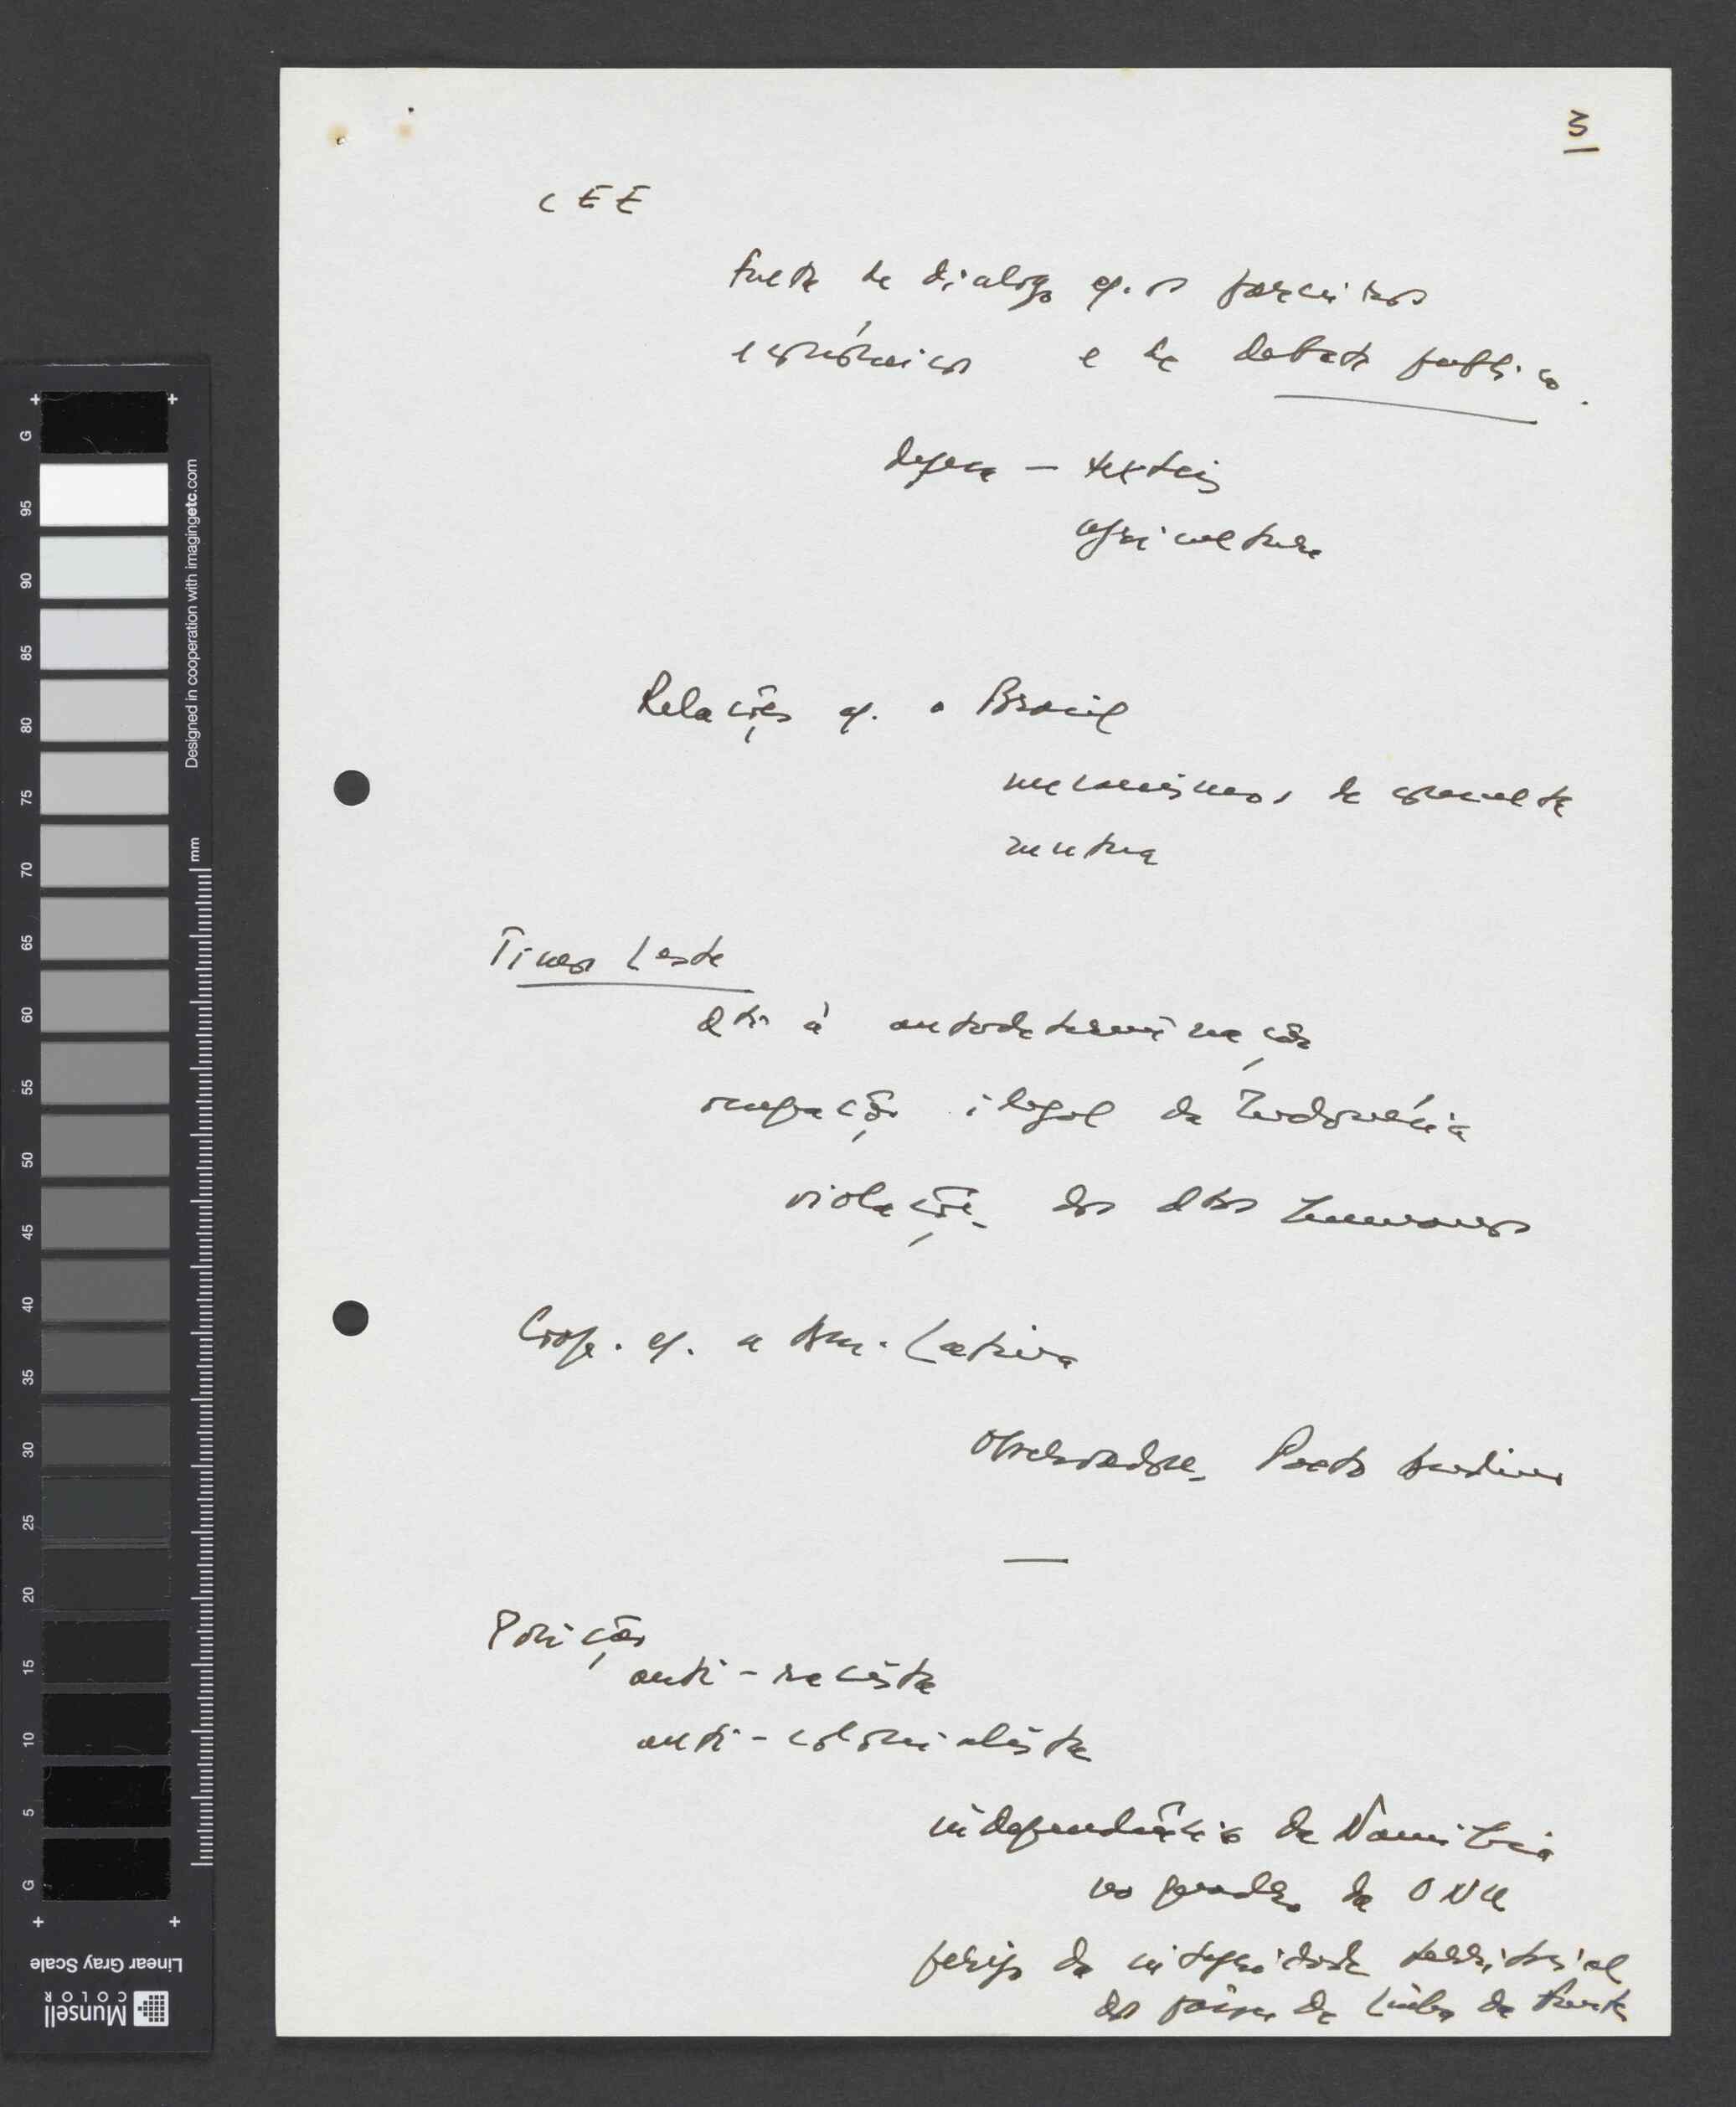 3
CEE
falta de dialogo c/. os parceiros
económicos e de debate publico.
defesa – texteis
agricultura
Relações c/. o Brasil
mecanismos de consulta
mutua
Timor Leste
dto à autodeterminação
ocupação ilegal da Indonésia
violações dos dtos humanos
Coop. c/. a Am. Latina
Observadores Pacto Andino
—
Posição
anti-racista
anti-colonialista
independência da Namibia
no quadro da ONU
perigo da integridade territorial
dos países da Linha da Frente
G 95 90 85 80 75 70 65 60 55 50 45 40 35 30 25 20 15 10 5 G
Designed in cooperation with imagingetc.com
mm
Linear Gray Scale
Munsell
COLOR